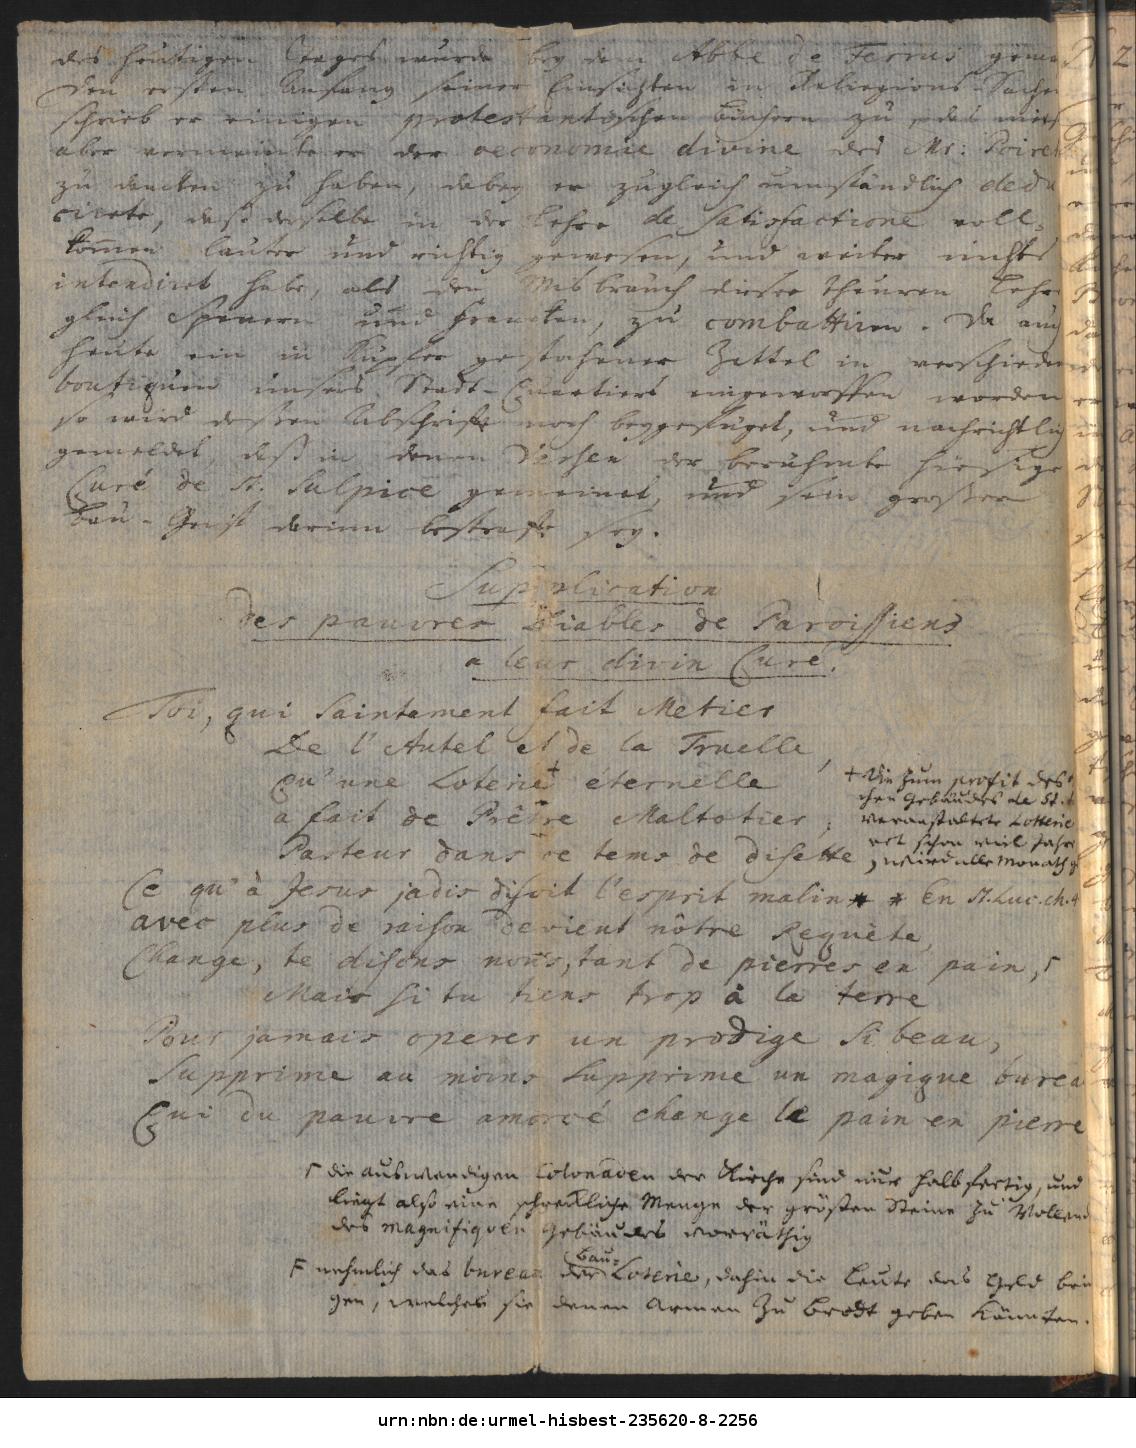 des heutigen Tages wurde bey dem Abbé de Ternus
Den ersten Anfang seiner Einsichten in Religions-Sachen
schrieb er einigen protestantischen Büchern zu, das
aber vermeinte er der oeconomie divine des Mr: Poiret
zu dancken zu haben, dabey er zugleich umständlich dedu
cirete, daß derselbe in der Lehre de Satisfactione voll-
kommen lauter und richtig gewesen, und weiter nichts
intendiret habe, als den Misbrauch dieser theuren Lehre
gleich Spenern und Francken, zu combattiren. Da auch
heute ein in Kupfer gestochener Zettel in verschiedenen
boutiquen unsers Stadt-Quartiers eingeworffen worden
so wird dessen Abschrifft noch beygefüget, und nachrichtlich
gemeldet, daß in denen Versen der berühmte hiesige
Curé de St. Sulpice gemeinet, und sein grosser
Bau-Geist darinn bestrafft sey.
Supplication
des pauvres Diables de Paroissiens
a leur divin Curé.
Toi, qui saintement fait Metier
De l'Autel et de la Truelle,
Qu'une Loterie+ éternelle
a fait de Prêtre Maltotier,
Pasteur dans ce tems de disette,
+ Die zum profit des
chen Gebäudes de St.
veranstaltete Lotterie
ret schon viel Jahr
, wird alle Monath
Ce qu'à Jesus jadis disoit l'esprit malin* * En St. Luc. ch. 4
avec plus de raison devient nôtre Requète,
Change, te disons nous, tant de pierres en pain, r
Mais si tu tiens trop à la terre
Pour jamais operer un prodige si beau,
Supprime au moins supprime un magique burea
Qui du pauvre amorcé change le pain en pierre
r die auswendigen Colonaden der Kirche sind nur halb fertig, und
liegt also eine schreckliche Menge der grösten Steine zu Vollend
des magnifiquen Gebäudes vorräthig
F nehmlich das bureau der Bau-Loterie, dahin die Leute das Geld brin
gen, welches sie denen Armen zu Brodt geben könnten.
urn:nbn:de:urmel-hisbest-235620-8-2256